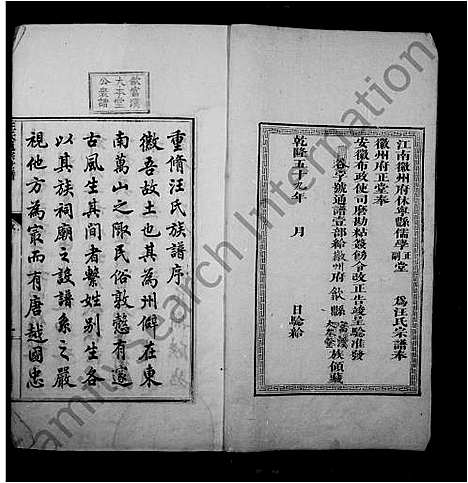 江南徽州府休寧縣儒學正副堂 為汪氏宗譜奉
徽州府正堂奉
安徽布政使司磨勘粘簽飭令改正告竣呈驗准發
字號通譜壹部給徽州府歙縣富溪族領藏
乾隆五十九年 月 日驗給
歙富溪
大本堂
公眾譜
重脩汪氏族譜序
徽吾故土也其為州僻在東
南萬山之陬民俗敦慤有邃
古風生其間者繫姓別生各
以其族祠廟之設譜系之嚴
視他方為最而有唐越國忠
FamilySearch International